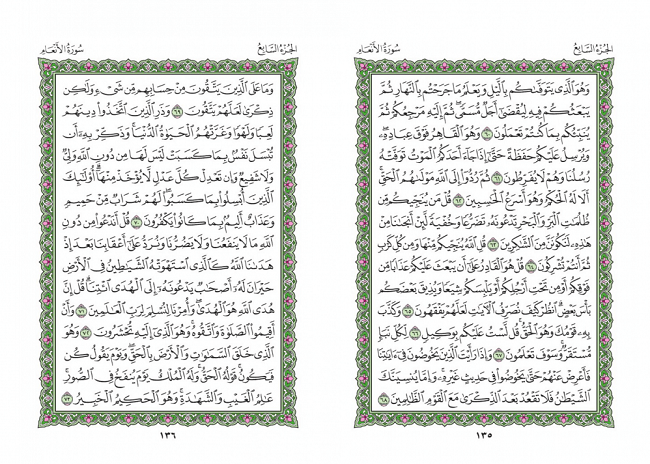 الجُزْءُ السَّابِعُ
سُورَةُ الأَنْعَامِ
وَهُوَ ٱلَّذِي يَتَوَفَّىٰكُم بِٱلَّيْلِ وَيَعْلَمُ مَا جَرَحْتُم بِٱلنَّهَارِ ثُمَّ
يَبْعَثُكُمْ فِيهِ لِيُقْضَىٰٓ أَجَلٌ مُّسَمًّى ۖ ثُمَّ إِلَيْهِ مَرْجِعُكُمْ ثُمَّ
يُنَبِّئُكُم بِمَا كُنتُمْ تَعْمَلُونَ ٦٠ وَهُوَ ٱلْقَاهِرُ فَوْقَ عِبَادِهِۦ ۖ
وَيُرْسِلُ عَلَيْكُمْ حَفَظَةً حَتَّىٰٓ إِذَا جَآءَ أَحَدَكُمُ ٱلْمَوْتُ تَوَفَّتْهُ
رُسُلُنَا وَهُمْ لَا يُفَرِّطُونَ ٦١ ثُمَّ رُدُّوٓا۟ إِلَى ٱللَّهِ مَوْلَىٰهُمُ ٱلْحَقِّ ۚ
أَلَا لَهُ ٱلْحُكْمُ وَهُوَ أَسْرَعُ ٱلْحَٰسِبِينَ ٦٢ قُلْ مَن يُنَجِّيكُم مِّن
ظُلُمَٰتِ ٱلْبَرِّ وَٱلْبَحْرِ تَدْعُونَهُۥ تَضَرُّعًا وَخُفْيَةً لَّئِنْ أَنجَىٰنَا مِنْ
هَٰذِهِۦ لَنَكُونَنَّ مِنَ ٱلشَّٰكِرِينَ ٦٣ قُلِ ٱللَّهُ يُنَجِّيكُم مِّنْهَا وَمِن كُلِّ كَرْبٍ
ثُمَّ أَنتُمْ تُشْرِكُونَ ٦٤ قُلْ هُوَ ٱلْقَادِرُ عَلَىٰٓ أَن يَبْعَثَ عَلَيْكُمْ عَذَابًا مِّن
فَوْقِكُمْ أَوْ مِن تَحْتِ أَرْجُلِكُمْ أَوْ يَلْبِسَكُمْ شِيَعًا وَيُذِيقَ بَعْضَكُم
بَأْسَ بَعْضٍ ۗ ٱنظُرْ كَيْفَ نُصَرِّفُ ٱلْءَايَٰتِ لَعَلَّهُمْ يَفْقَهُونَ ٦٥ وَكَذَّبَ
بِهِۦ قَوْمُكَ وَهُوَ ٱلْحَقُّ ۚ قُل لَّسْتُ عَلَيْكُم بِوَكِيلٍ ٦٦ لِّكُلِّ نَبَإٍ
مُّسْتَقَرٌّ ۚ وَسَوْفَ تَعْلَمُونَ ٦٧ وَإِذَا رَأَيْتَ ٱلَّذِينَ يَخُوضُونَ فِىٓ ءَايَٰتِنَا
فَأَعْرِضْ عَنْهُمْ حَتَّىٰ يَخُوضُوا۟ فِى حَدِيثٍ غَيْرِهِۦ ۚ وَإِمَّا يُنسِيَنَّكَ
ٱلشَّيْطَٰنُ فَلَا تَقْعُدْ بَعْدَ ٱلذِّكْرَىٰ مَعَ ٱلْقَوْمِ ٱلظَّٰلِمِينَ ٦٨
١٣٥
الجُزْءُ السَّابِعُ
سُورَةُ الأَنْعَامِ
وَمَا عَلَى ٱلَّذِينَ يَتَّقُونَ مِنْ حِسَابِهِم مِّن شَىْءٍ وَلَٰكِن
ذِكْرَىٰ لَعَلَّهُمْ يَتَّقُونَ ٦٩ وَذَرِ ٱلَّذِينَ ٱتَّخَذُوا۟ دِينَهُمْ
لَعِبًا وَلَهْوًا وَغَرَّتْهُمُ ٱلْحَيَوٰةُ ٱلدُّنْيَا ۚ وَذَكِّرْ بِهِۦٓ أَن
تُبْسَلَ نَفْسٌۢ بِمَا كَسَبَتْ لَيْسَ لَهَا مِن دُونِ ٱللَّهِ وَلِىٌّ
وَلَا شَفِيعٌ وَإِن تَعْدِلْ كُلَّ عَدْلٍ لَّا يُؤْخَذْ مِنْهَآ ۗ أُو۟لَٰٓئِكَ
ٱلَّذِينَ أُبْسِلُوا۟ بِمَا كَسَبُوا۟ ۖ لَهُمْ شَرَابٌ مِّنْ حَمِيمٍ
وَعَذَابٌ أَلِيمٌۢ بِمَا كَانُوا۟ يَكْفُرُونَ ٧٠ قُلْ أَنَدْعُوا۟ مِن دُونِ
ٱللَّهِ مَا لَا يَنفَعُنَا وَلَا يَضُرُّنَا وَنُرَدُّ عَلَىٰٓ أَعْقَابِنَا بَعْدَ إِذْ
هَدَىٰنَا ٱللَّهُ كَٱلَّذِى ٱسْتَهْوَتْهُ ٱلشَّيَٰطِينُ فِى ٱلْأَرْضِ
حَيْرَانَ لَهُۥٓ أَصْحَٰبٌ يَدْعُونَهُۥٓ إِلَى ٱلْهُدَى ٱئْتِنَا ۗ قُلْ إِنَّ
هُدَى ٱللَّهِ هُوَ ٱلْهُدَىٰ ۖ وَأُمِرْنَا لِنُسْلِمَ لِرَبِّ ٱلْعَٰلَمِينَ ٧١ وَأَنْ
أَقِيمُوا۟ ٱلصَّلَوٰةَ وَٱتَّقُوهُ ۚ وَهُوَ ٱلَّذِىٓ إِلَيْهِ تُحْشَرُونَ ٧٢ وَهُوَ
ٱلَّذِى خَلَقَ ٱلسَّمَٰوَٰتِ وَٱلْأَرْضَ بِٱلْحَقِّ ۖ وَيَوْمَ يَقُولُ كُن
فَيَكُونُ ۚ قَوْلُهُ ٱلْحَقُّ ۚ وَلَهُ ٱلْمُلْكُ يَوْمَ يُنفَخُ فِى ٱلصُّورِ ۚ
عَٰلِمُ ٱلْغَيْبِ وَٱلشَّهَٰدَةِ ۚ وَهُوَ ٱلْحَكِيمُ ٱلْخَبِيرُ ٧٣
١٣٦